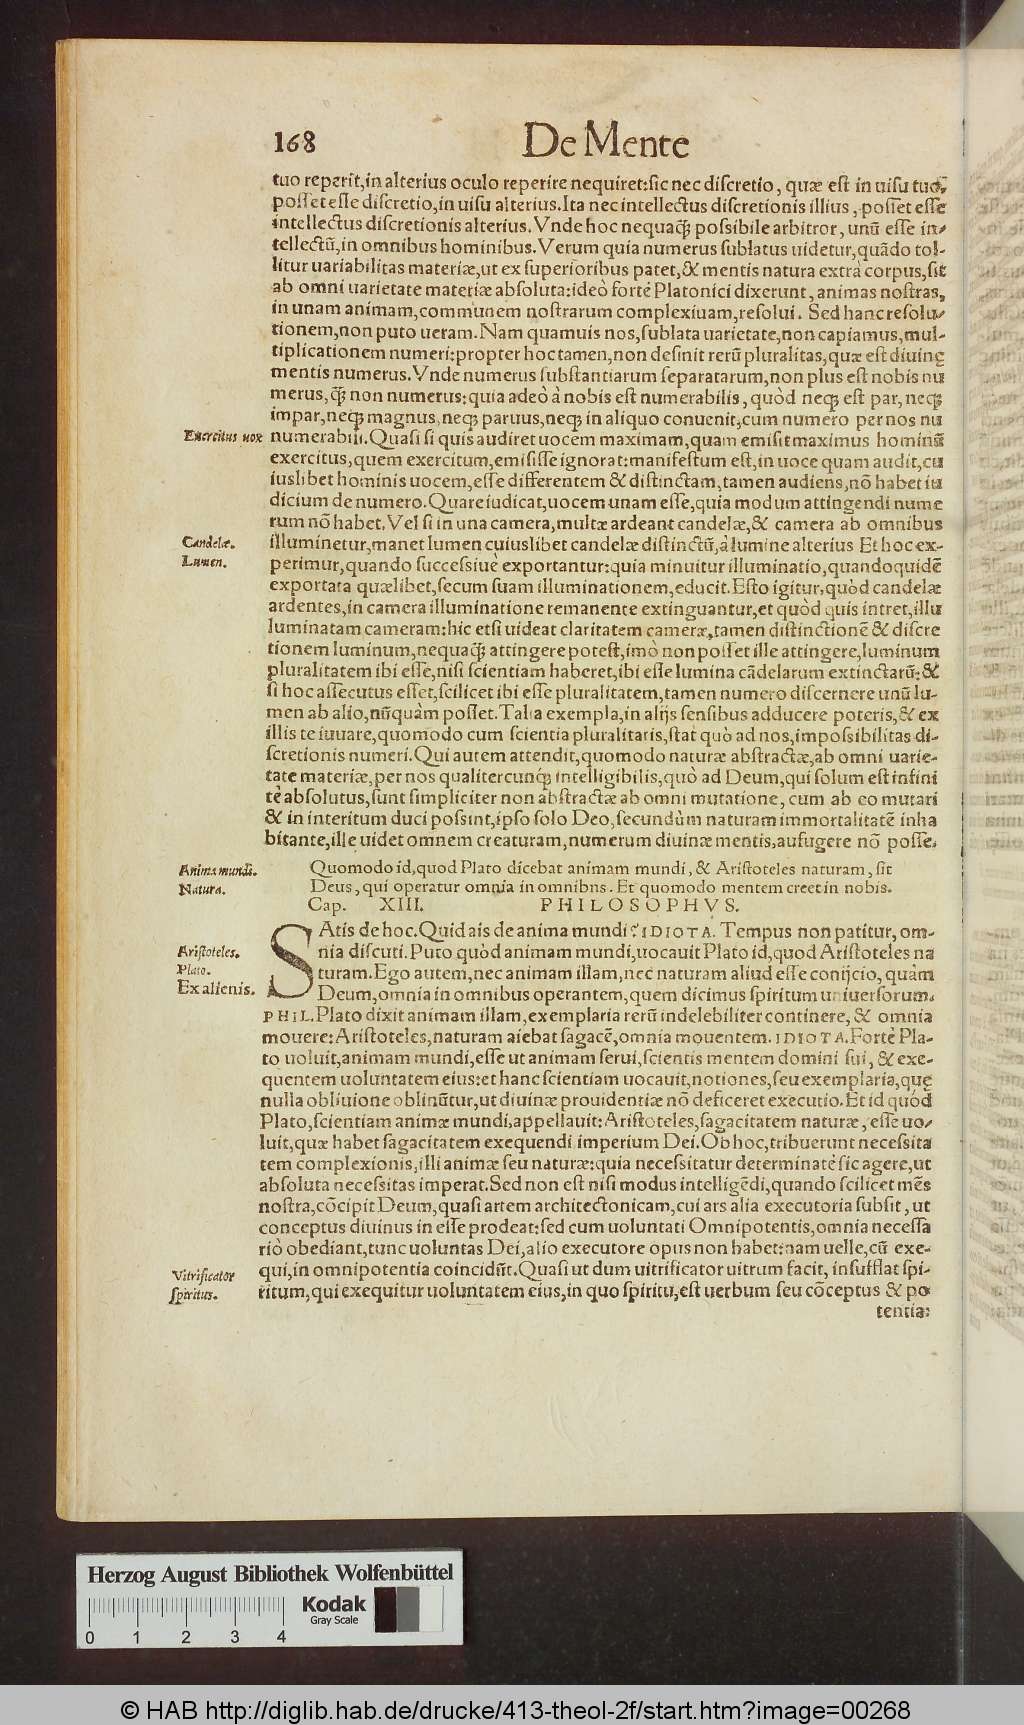 168 De Mente
tuo reperit, in alterius oculo reperire nequiret: sic nec discretio, quæ est in uisu tuo,
posset esse discretio, in uisu alterius. Ita nec intellectus discretionis illius, posset esse
intellectus discretionis alterius. Vnde hoc nequaq̃ possibile arbitror, unũ esse in-
tellectũ, in omnibus hominibus. Verum quia numerus sublatus uidetur, quãdo tol-
litur uariabilitas materiæ, ut ex superioribus patet, & mentis natura extrà corpus, sit
ab omni uarietate materiæ absoluta: ideò fortè Platonici dixerunt, animas nostras,
in unam animam, communem nostrarum complexiuam, resolui. Sed hanc resolu-
tionem, non puto ueram. Nam quamuis nos, sublata uarietate, non capiamus, mul-
tiplicationem numeri: propter hoc tamen, non desinit rerũ pluralitas, quæ est diuinę
mentis numerus. Vnde numerus substantiarum separatarum, non plus est nobis nu
merus, q̃ non numerus: quia adeò à nobis est numerabilis, quòd neqꝫ est par, neqꝫ
impar, neqꝫ magnus, neqꝫ paruus, neqꝫ in aliquo conuenit, cum numero per nos nu
Exercitus uox
numerabili. Quasi si quis audiret uocem maximam, quam emisit maximus hominũ
exercitus, quem exercitum, emisisse ignorat: manifestum est, in uoce quam audit, cu
iuslibet hominis uocem, esse differentem & distinctam, tamen audiens, nõ habet iu
dicium de numero. Quare iudicat, uocem unam esse, quia modum attingendi nume
rum nõ habet. Vel si in una camera, multæ ardeant candelæ, & camera ab omnibus
Candelæ.
illuminetur, manet lumen cuiuslibet candelæ distinctũ, à lumine alterius Et hoc ex-
Lumen.
perimur, quando successiuè exportantur: quia minuitur illuminatio, quandoquidẽ
exportata quælibet, secum suam illuminationem, educit. Esto igitur, quòd candelæ
ardentes, in camera illuminatione remanente extinguantur, et quòd quis intret, illu
luminatam cameram: hic etsi uideat claritatem cameræ, tamen distinctionẽ & discre
tionem luminum, nequaq̃ attingere potest, imò non posset ille attingere, luminum
pluralitatem ibi esse, nisi scientiam haberet, ibi esse lumina cãdelarum extinctarũ: &
si hoc assecutus esset, scilicet ibi esse pluralitatem, tamen numero discernere unũ lu-
men ab alio, nũquàm posset. Talia exempla, in alijs sensibus adducere poteris, & ex
illis te iuuare, quomodo cum scientia pluralitatis, stat quò ad nos, impossibilitas di-
scretionis numeri. Qui autem attendit, quomodo naturæ abstractæ, ab omni uarie-
tate materiæ, per nos qualitercunqꝫ intelligibilis, quò ad Deum, qui solum est infini
tè absolutus, sunt simpliciter non abstractæ ab omni mutatione, cum ab eo mutari
& in interitum duci possint, ipso solo Deo, secundùm naturam immortalitatẽ inha
bitante, ille uidet omnem creaturam, numerum diuinæ mentis, aufugere nõ posse.
Anima mundi.
Quomodo id, quod Plato dicebat animam mundi, & Aristoteles naturam, sit
Natura.
Deus, qui operatur omnia in omnibns. Et quomodo mentem creet in nobis.
Cap. XIII. PHILOSOPHVS.
SAtis de hoc. Quid ais de anima mundi? IDIOTA. Tempus non patitur, om-
Aristoteles.
nia discuti. Puto quòd animam mundi, uocauit Plato id, quod Aristoteles na
Plato.
turam. Ego autem, nec animam illam, nec naturam aliud esse conijcio, quàm
Ex alienis.
Deum, omnia in omnibus operantem, quem dicimus spiritum uniuersorum.
PHIL. Plato dixit animam illam, exemplaria rerũ indelebiliter continere, & omnia
mouere: Aristoteles, naturam aiebat sagacẽ, omnia mouentem. IDIOTA. Fortè Pla-
to uoluit, animam mundi, esse ut animam serui, scientis mentem domini sui, & exe-
quentem uoluntatem eius: et hanc scientiam uocauit, notiones, seu exemplaria, quę
nulla obliuione oblinũtur, ut diuinæ prouidentiæ nõ deficeret executio. Et id quòd
Plato, scientiam animæ mundi, appellauit: Aristoteles, sagacitatem naturæ, esse uo-
luit, quæ habet sagacitatem exequendi imperium Dei. Ob hoc, tribuerunt necessita
tem complexionis, illi animæ seu naturæ: quia necessitatur determinatè sic agere, ut
absoluta necessitas imperat. Sed non est nisi modus intelligẽdi, quando scilicet mẽs
nostra, cõcipit Deum, quasi artem architectonicam, cui ars alia executoria subsit, ut
conceptus diuinus in esse prodeat: sed cum uoluntati Omnipotentis, omnia necessa
riò obediant, tunc uoluntas Dei, alio executore opus non habet: nam uelle, cũ exe-
Vitrificator
qui, in omnipotentia coincidũt. Quasi ut dum uitrificator uitrum facit, insufflat spi-
spiritus.
ritum, qui exequitur uoluntatem eius, in quo spiritu, est uerbum seu cõceptus & po
tentia:
Herzog August Bibliothek Wolfenbüttel
Kodak
Gray Scale
0 1 2 3 4
© HAB http://diglib.hab.de/drucke/413-theol-2f/start.htm?image=00268